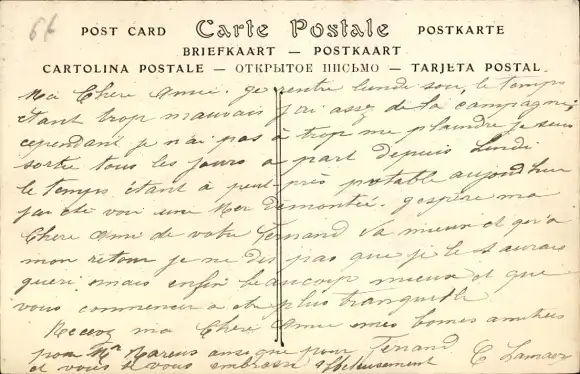 66
POST CARD Carte Postale POSTKARTE
BRIEFKAART — POSTKAART
CARTOLINA POSTALE — ОТКРЫТОЕ ПИСЬМО — TARJETA POSTAL
Ma Chere Amie. je rentre lundi soir, le temps
etant trop mauvais j'ai assez de la campagne,
cependant je n'ai pas à trop me plaindre je suis
sortie tous les jours a part depuis Lundi
le temps étant à peu près potable aujourd'hui
j'ai été voir une Mer démontée. j'espère ma
Chere Ami de votre Fernand va mieux et qu'a
mon retour je ne dis pas que je le saurais
gueri mais enfin beaucoup mieux et que
vous commencer a etre plus tranquille
Recevez ma Chere Amie mes bonnes amities
pour Mr Marcus ansi que pour Fernand
et vous je vous embrasse affectueusement C